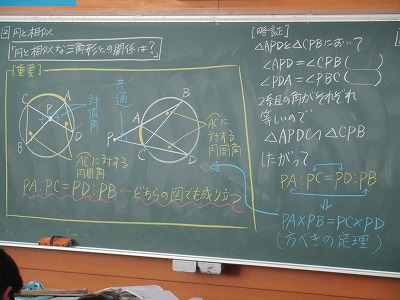 円と相似
「円と相似な三角形との関係は？」
[重要]
C
A
P
対頂角
B
D
ACに対する
円周角
共通
B
A
P
C
D
ACに対する
円周角
PA:PC=PD:PB ← どちらの図でも成り立つ
[略証]
△APDと△CPBにおいて
∠APD=∠CPB( )
∠PDA=∠PBC( )
2組の角がそれぞれ
等しいので
△APD∽△CPB
したがって
PA:PC=PD:PB
⇓
PA×PB=PC×PD
(方べきの定理)